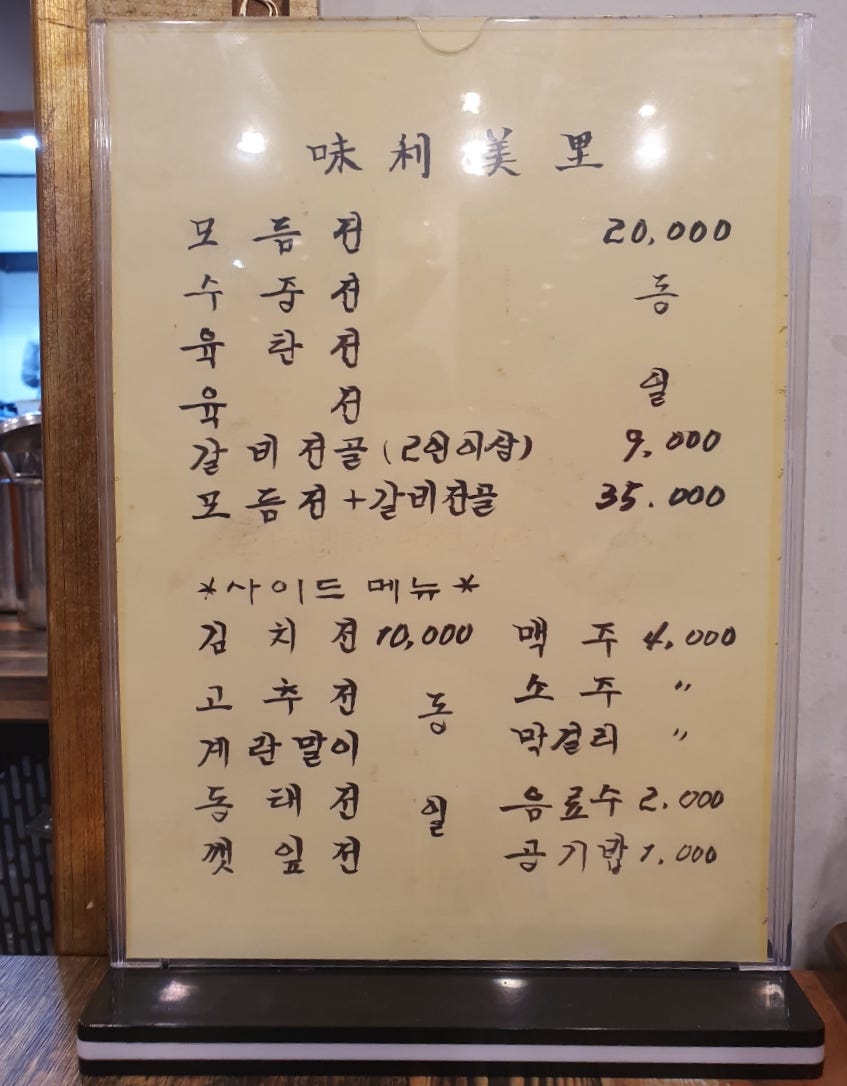 味利美里
모듬전 20,000
수중전 동
육탄전
육전 일
갈비전골 (2인이상) 9,000
모듬전+갈비전골 35.000
*사이드 메뉴*
김치전 10,000 맥주 4,000
고추전 동 소주 〃
계란말이 막걸리 〃
동태전 일 음료수 2.000
깻잎전 공기밥 1.000